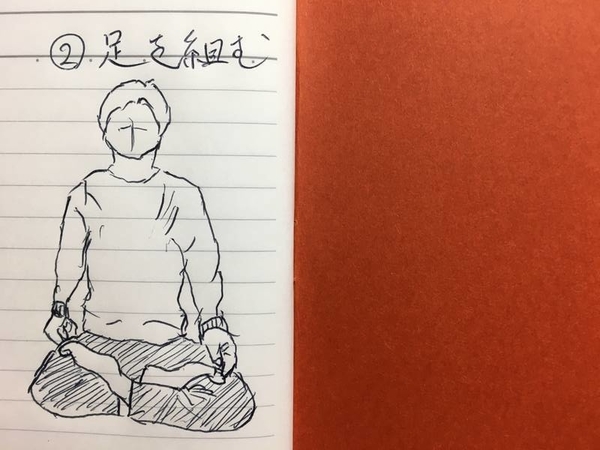 ②足を組む